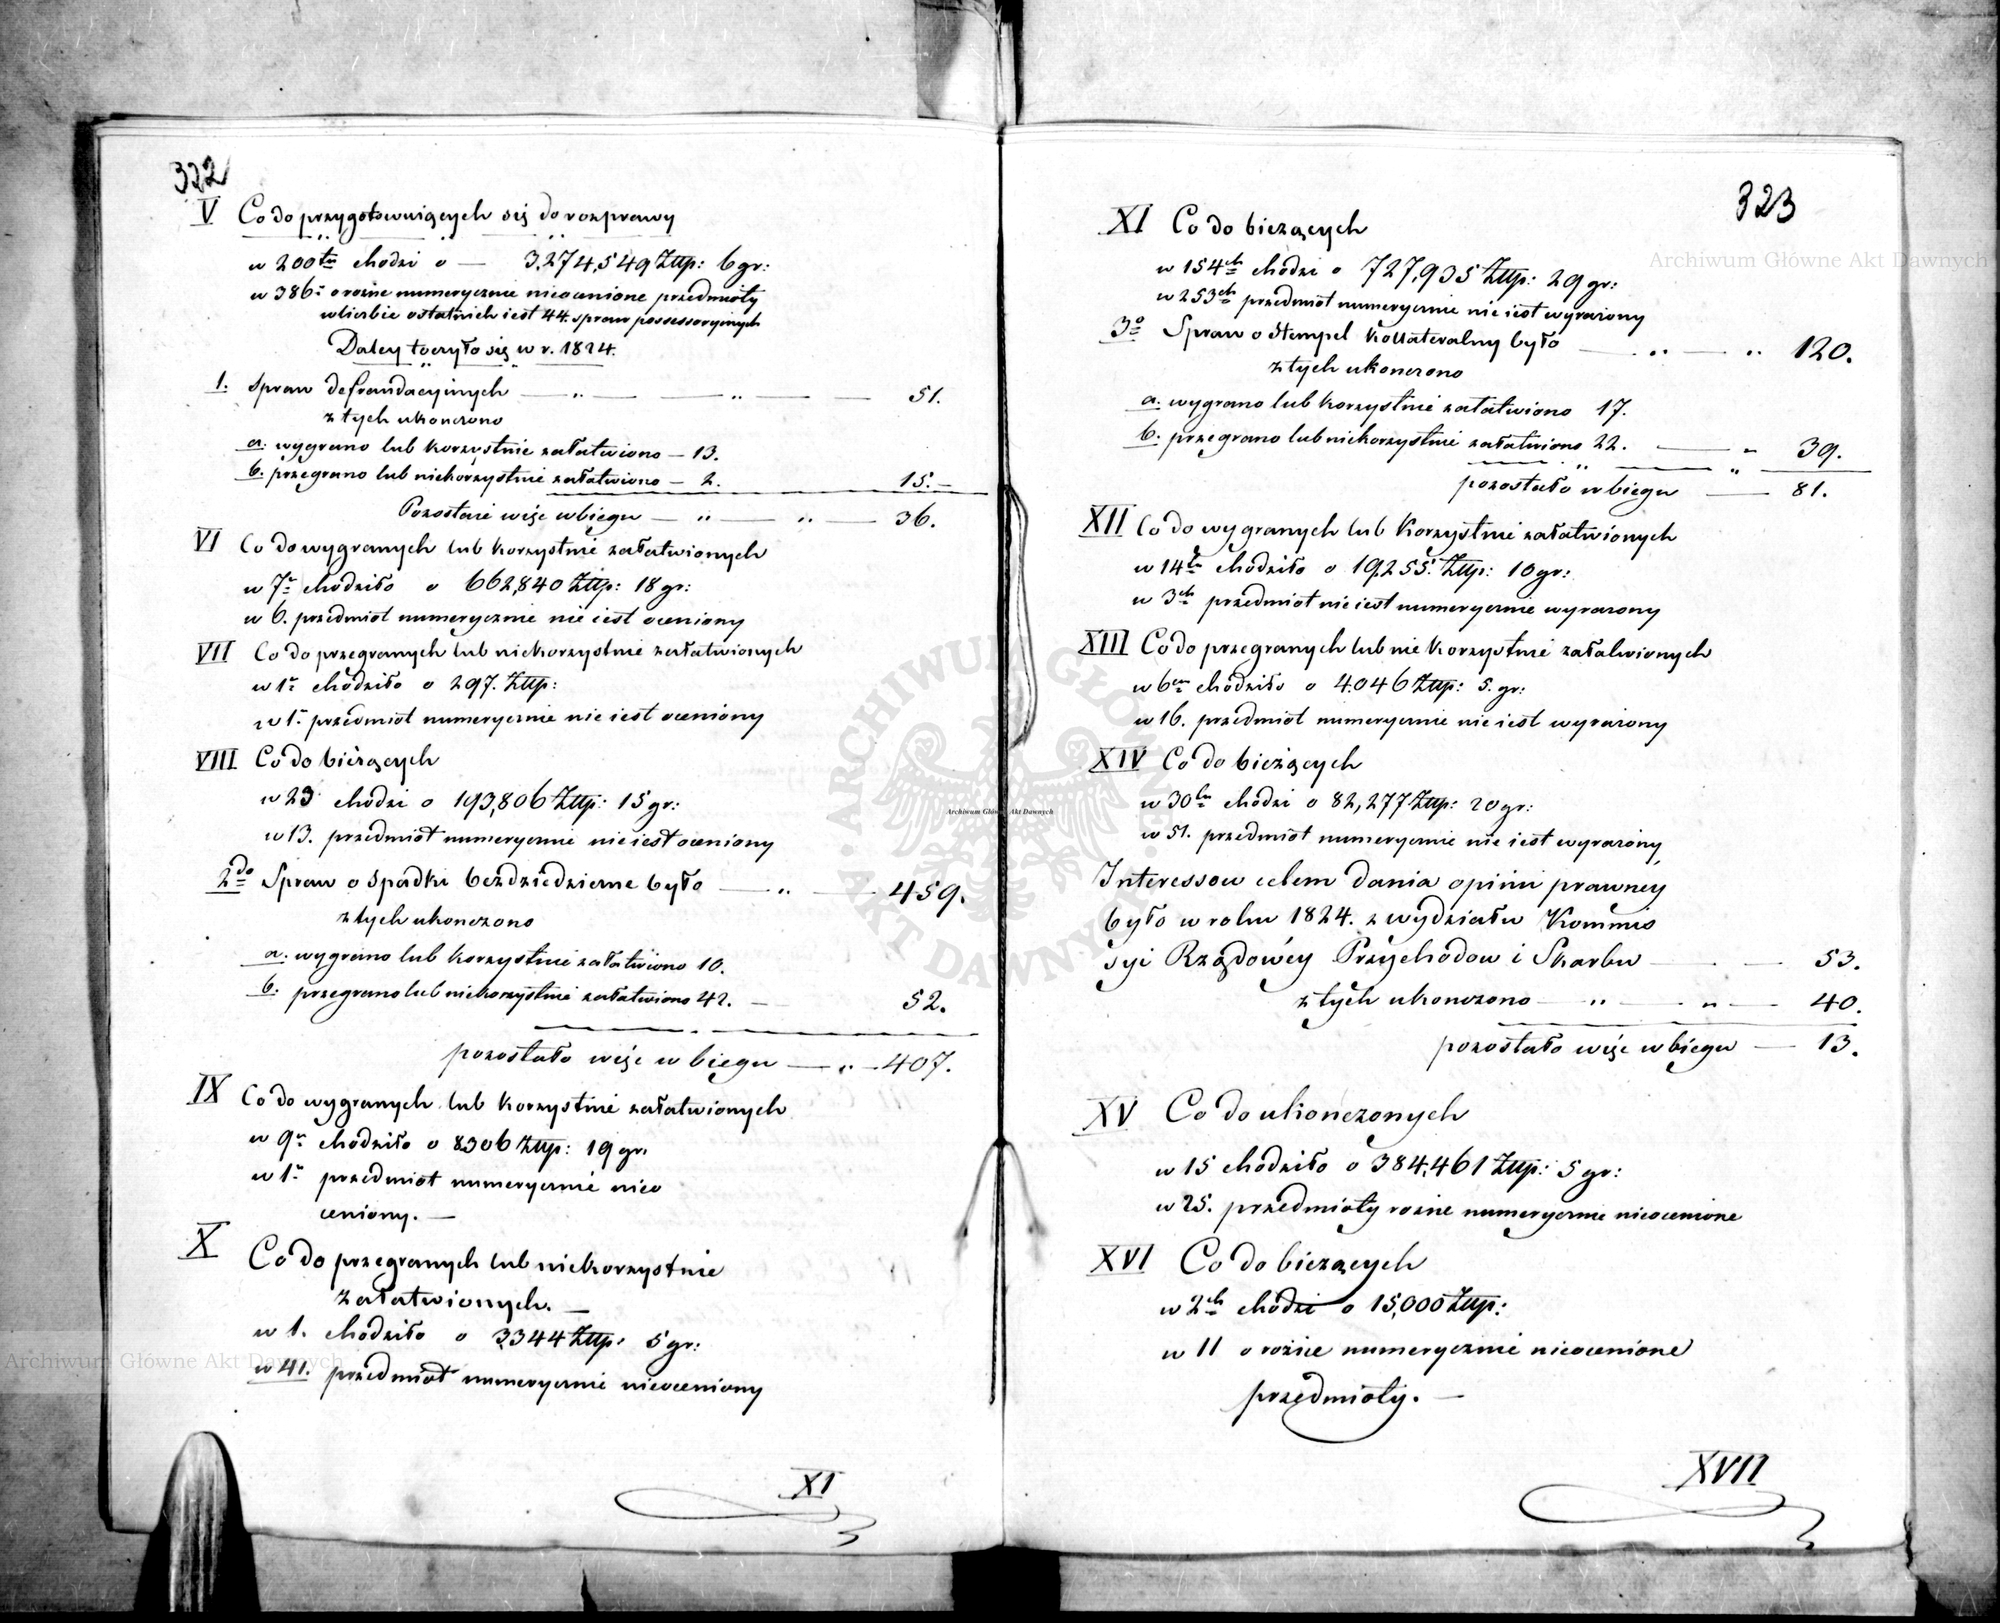 322
V Co do przygotowuiących się do rozprawy
w 200tu chodzi o — 3,274,549 Złlp: 6 gr:
w 386: o rożne numerycznie nieocenione przedmioty
w liczbie ostatnich iest 44. spraw possessoryinych
Daley toczyło się w r. 1824.
1. Spraw defraudacyinych — „ — — „ — — 51.
z tych ukonczono
a. wygrano lub korzystnie załatwiono — 13.
b. przegrano lub niekorzystnie załatwiono — 2. 15. —
Pozostaie więc w biegu — „ — „ — 36.
VI Co do wygranych lub korzystnie załatwionych
w 7u chodziło o 662,840 Złlp: 18 gr:
w 6. przedmiot numerycznie nie iest oceniony
VII Co do przegranych lub niekorzystnie załatwionych
w 1u chodziło o 297. Złlp:
w 1. przedmiot numerycznie nie iest oceniony
VIII Co do bieżących
w 23 chodzi o 193,806 Złlp: 15 gr:
w 13. przedmiot numerycznie nie iest oceniony
2do Spraw o Spadki bezdziedziczne było — „ — 459.
z tych ukonczono
a. wygrano lub korzystnie załatwiono 10.
b. przegrano lub niekorzystnie załatwiono 42. — 52.
pozostało więc w biegu — „ — 407.
IX Co do wygranych lub korzystnie załatwionych
w 9u chodziło o 8306 Złlp: 19 gr.
w 1u przedmiot numerycznie nieo
ceniony. —
X Co do przegranych lub niekorzystnie
załatwionych. —
w 1. chodziło o 3344 Złlp: 5 gr:
w 41. przedmiot numerycznie nieoceniony
XI
323
XI Co do bieżących
w 154ch chodzi o 727,935 Złlp: 29 gr:
w 253ch przedmiot numerycznie nie iest wyrażony
3o Spraw o Stempel Kollateralny było — „ — „ 120.
z tych ukonczono
a. wygrano lub korzystnie załatwiono 17.
b. przegrano lub niekorzystnie załatwiono 22. — „ 39.
pozostało w biegu — 81.
XII Co do wygranych lub Korzystnie załatwionych
w 14tu chodziło o 19,255. Złlp: 10 gr:
w 3ch przedmiot nie iest numerycznie wyrażony
XIII Co do przegranych lub nie korzystnie załatwionych
w 6ciu chodziło o 4.046 Złlp: 5. gr:
w 16. przedmiot numerycznie nie iest wyrażony
XIV Co do bieżących
w 30tu chodzi o 82,277 Złlp: 20 gr:
w 51. przedmiot numerycznie nie iest wyrażony
Interessow celem dania opinii prawney
było w roku 1824. z wydziału Kommis
syi Rządowéy Przychodow i Skarbu — — 53.
z tych ukonczono — „ — „ — 40.
pozostało więc w biegu — 13.
XV Co do ukonczonych
w 15 chodziło o 384,461 Złlp: 5 gr:
w 25. przedmioty rożnie numerycznie nieocenione
XVI Co do bieżących
w 2ch chodzi o 15,000 Złlp:
w 11 o rożne numerycznie nieocenione
przedmioty. —
XVII
Archiwum Główne Akt Dawnych
Archiwum Główne Akt Dawnych
Archiwum Główne Akt Dawnych
ARCHIWUM GŁÓWNE
AKT DAWNYCH